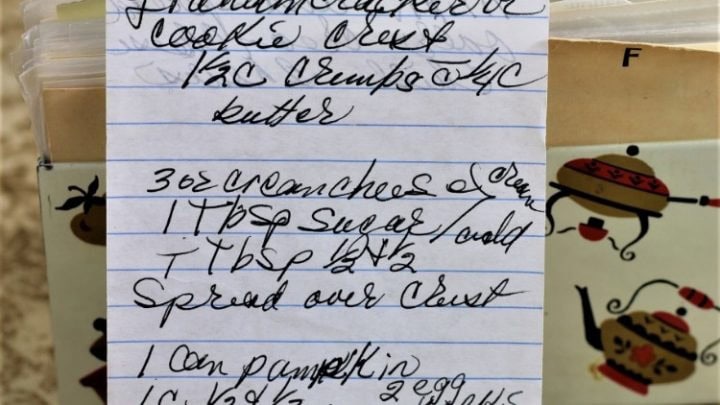 Graham cracker or
cookie crust
1½ C crumbs c̄ ¼ C
butter
3 oz cream chees & cream
1 Tbsp sugar / add
1 Tbsp ½ & ½
Spread over crust
1 can pumpkin
1 C ½ & ½ 2 egg
F